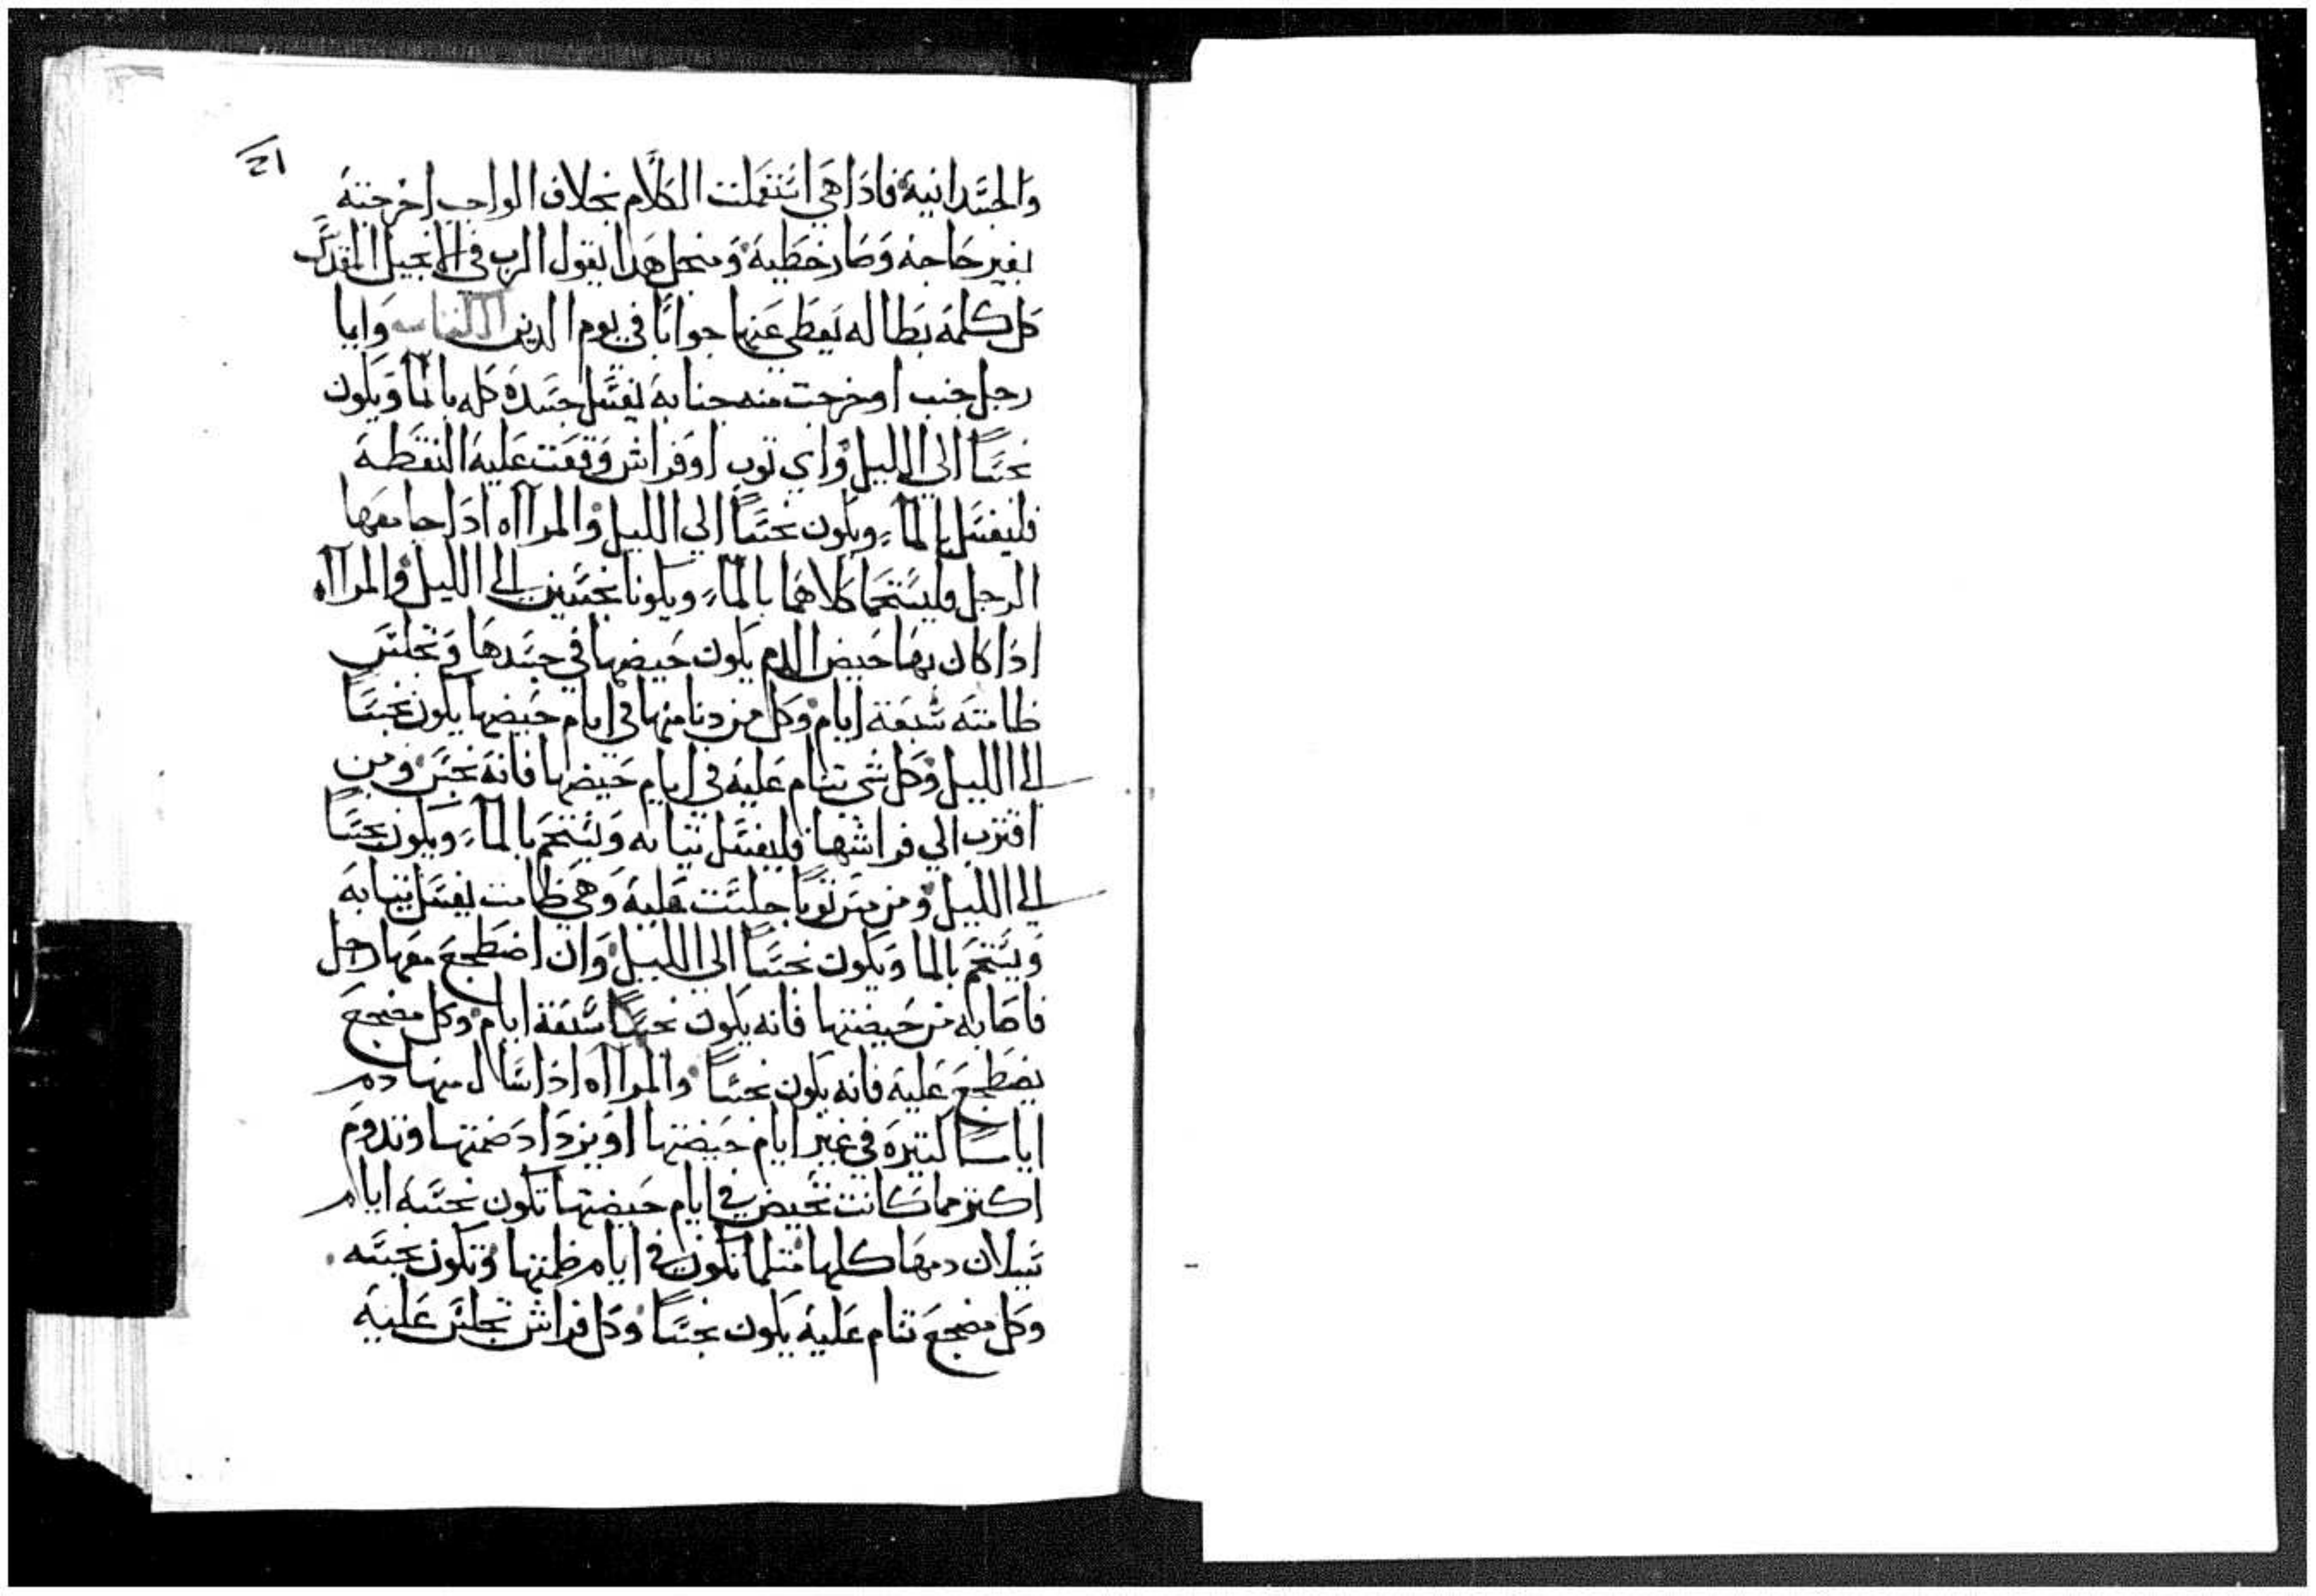 والجسدانية فاذا هي استعملت الكلام بخلاف الواجب اخرجته
بغير حاجه وصار خطية ومنجل هدا يقول الرب في الانجيل المقدس
كل كلمة بطاله يعطي عنها جوابا في يوم الدين وايا
رجل جنب اوخرجت منه جنابة يغسل جسده كله بالما ويكون
نجسا الي الليل واي توب اوفراش وقعت عليه النقطة
فليغسل بالما ويكون نجسا الي الليل والمرااه ادا جامعها
الرجل فليستحما كلاهما بالما ويكونا نجسين الي الليل والمرااه
ادا كان بها حيض الدم يكون حيضها في جسدها وتجلس
طامته سبعة ايام وكل من دنا منها في ايام حيضها يكون نجسا
الي الليل وكل شي تنام عليه في ايام حيضها فانه نجس ومن
اقترب الي فراشها فليغسل تيابه وليستحم بالما ويكون نجسا
الي الليل ومن مس توبا جلست عليه وهي طامت يغسل تيابه
ويستحم بالما ويكون نجسا الي الليل وان اضطجع معها رجل
فاصابه من حيضتها فانه يكون نجسا سبعة ايام وكل مضجع
يضطجع عليه فانه يكون نجسا والمرااه ادا سال منها دم
اياما كتيره في غير ايام حيضتها او يزداد طمتها وتدوم
اكتر مما كانت تحيض في ايام حيضتها تكون نجسة ايام
سيلان دمها كلها متلما تكون في ايام طمتها وتكون نجسه
وكل مضجع تنام عليه يكون نجسا وكل فراش تجلس عليه